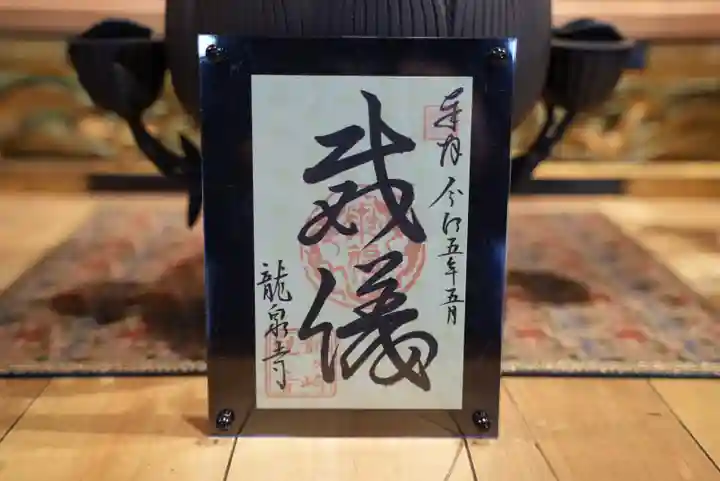 奉拝 令和五年五月
威儀
龍泉寺